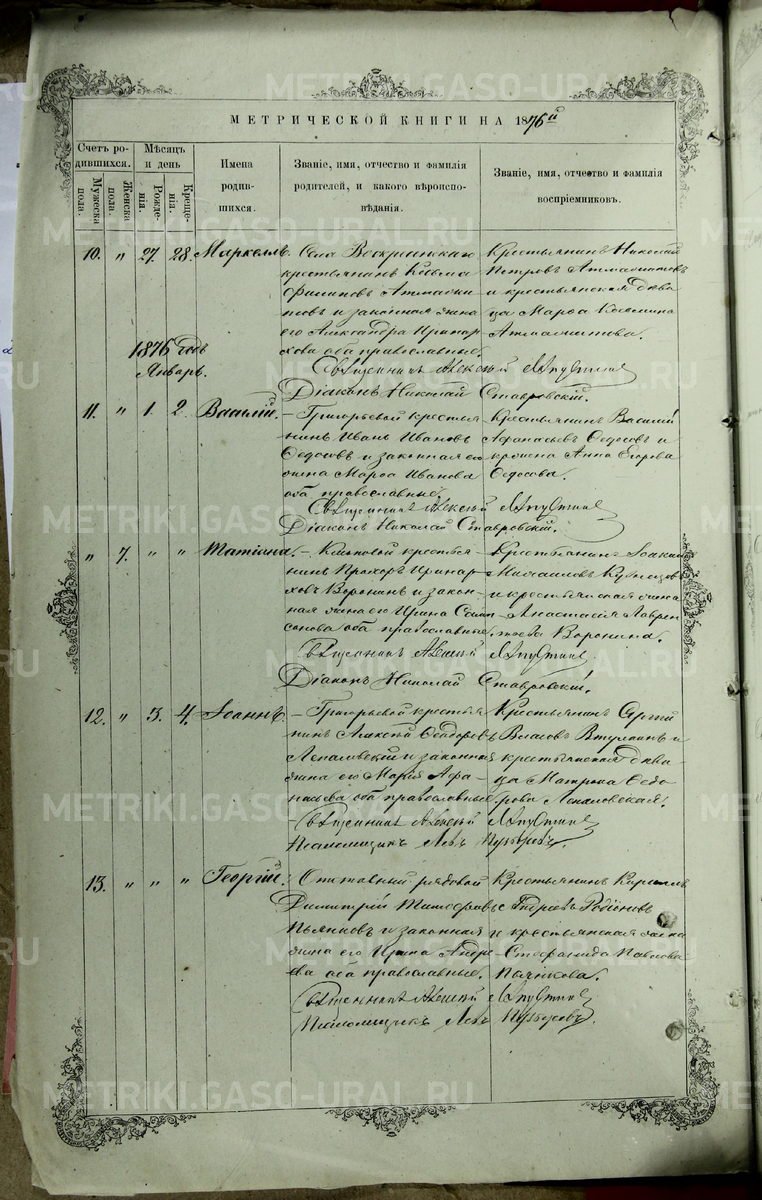 METRIKI.GASO-URAL.RU
МЕТРИЧЕСКОЙ КНИГИ НА 1876й
Счетъ родившихся.
Мужеска пола.
Женска пола.
Мѣсяцъ и день
Рожденія.
Крещенія.
Имена родившихся.
Званіе, имя, отчество и фамилія родителей, и какого вѣроисповѣданія.
Званіе, имя, отчество и фамилія воспріемниковъ.
10. " 27. 28. Маркеллъ. Села Воскресенскаго
крестьянинъ Козьма
Филиповъ
и законная жена
его Александра Иринар
хова оба православные.
Крестьянинъ Николай
Петровъ
и крестьянская дѣви
ца Марѳа Козмина
Священникъ Алексѣй
Діаконъ Николай Ставровскій.
1876 годъ
Январь.
11. " 1. 2. Василій. – Григорьевой крестья
нинъ Иванъ Ивановъ
Ѳедосовъ и законная его
жена Марѳа Иванова
оба православные.
Крестьянинъ Василій
Афанасьевъ Ѳедосовъ и
Анна Егорова
Ѳедосова.
Священникъ Алексѣй
Діаконъ Николай Ставровскій.
" 7. " " Татіана. – крестья
нинъ Прохоръ Иринар
ховъ Воронинъ и закон
ная жена его Ирина Сам
сонова оба православные.
Крестьянинъ Іоакимъ
Михаиловъ
и крестьянская жена
Анастасія Лаврен
тьева Воронина.
Священникъ Алексѣй
Діаконъ Николай Ставровскій.
12. " 3. 4. Іоаннъ. – Григорьевой крестья
нинъ Алексѣй Ѳеодоровъ
и законная
жена его Марія Афа
насьева оба православные
Крестьянинъ Сергій
Власовъ и
крестьянская дѣви
ца Матрона Ѳедо
рова
Священникъ Алексѣй
Псаломщикъ Левъ
13. " " " Георгій. Отставный рядовой
Димитрій Тимоѳеевъ
Пьянковъ и законная
жена его Ирина Андре
ева оба православные.
Крестьянинъ Кириллъ
Андреевъ Родіоновъ
и крестьянская жена
Стефанида Павлова
Пьянкова.
Священникъ Алексѣй
Псаломщикъ Левъ